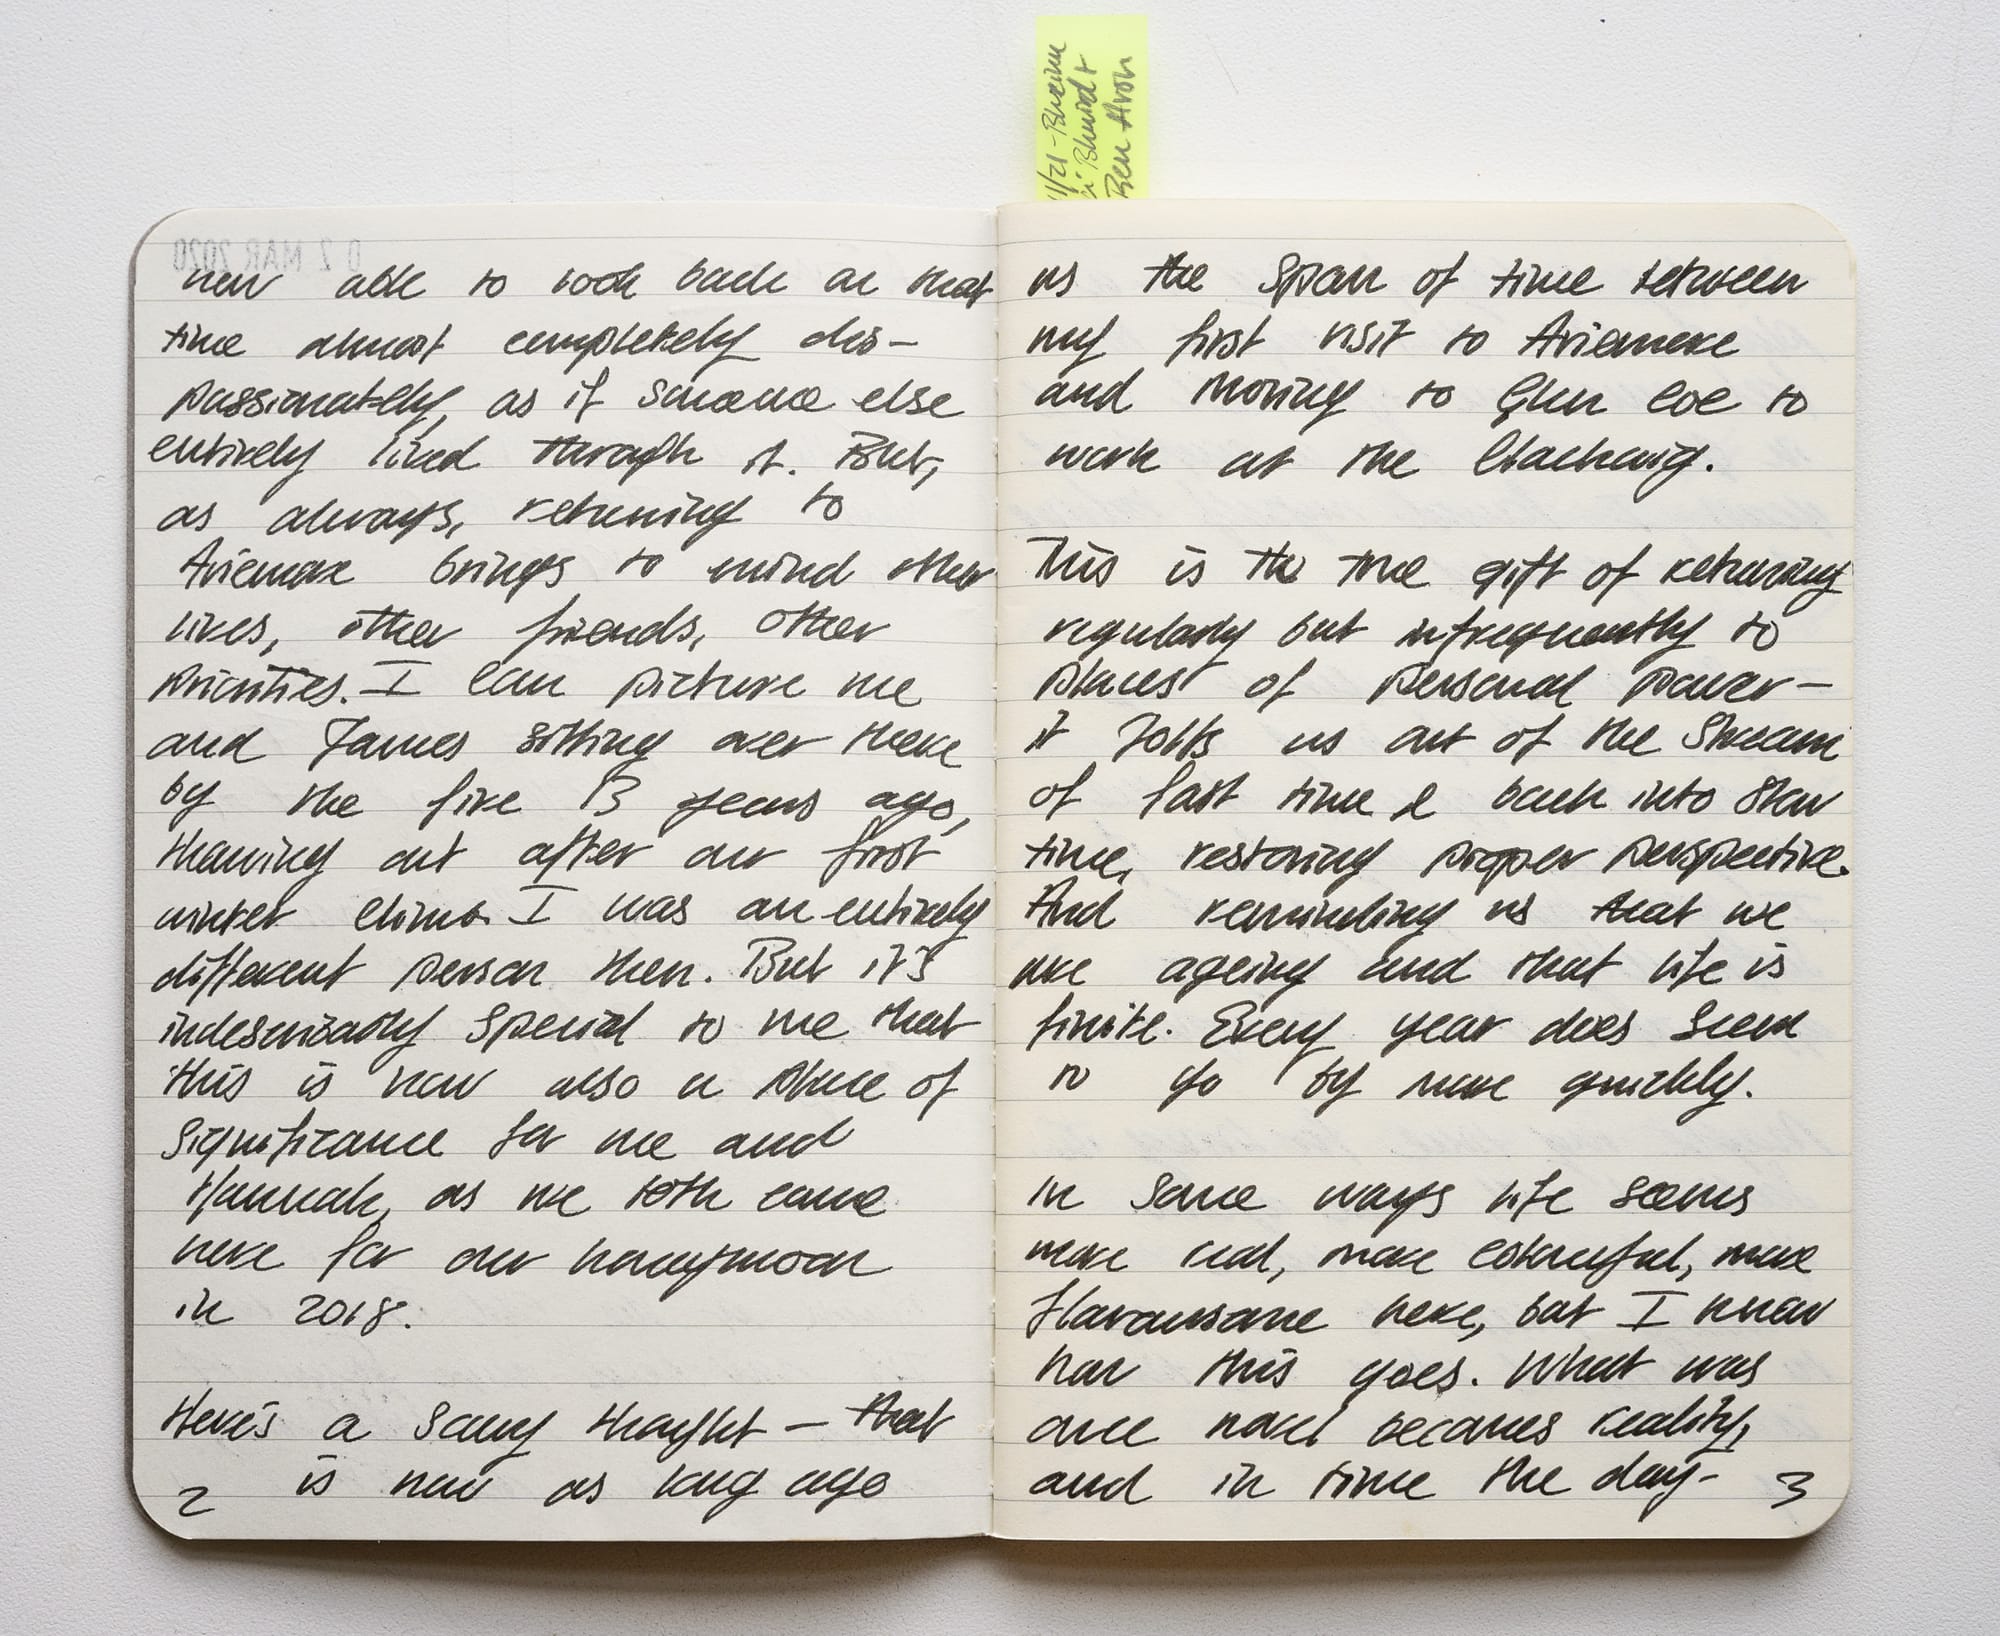 11/21 - Bheinn
a' Bhuird +
Ben Avon
02 MAR 2020
now able to look back on that
time almost completely dis-
passionately, as if someone else
entirely lived through it. But,
as always, returning to
Aviemore brings to mind other
lives, other friends, other
priorities. I can picture me
and James sitting over there
by the fire 13 years ago,
thawing out after our first
winter climb. I was an entirely
different person then. But it's
indescribably special to me that
this is now also a place of
significance for me and
Hannah, as we both came
here for our honeymoon
in 2018.
Here's a scary thought – that
is now as long ago
2
as the span of time between
my first visit to Aviemore
and moving to Glen Coe to
work at the Clachaig.
This is the true gift of returning
regularly but infrequently to
places of personal power –
it jolts us out of the stream
of fast time & back into slow
time, restoring proper perspective.
And reminding us that we
are ageing and that life is
finite. Every year does seem
to go by more quickly.
In some ways life seems
more real, more colourful, more
flavoursome here, but I know
how this goes. What was
once novel becomes reality,
and in time the day-
3